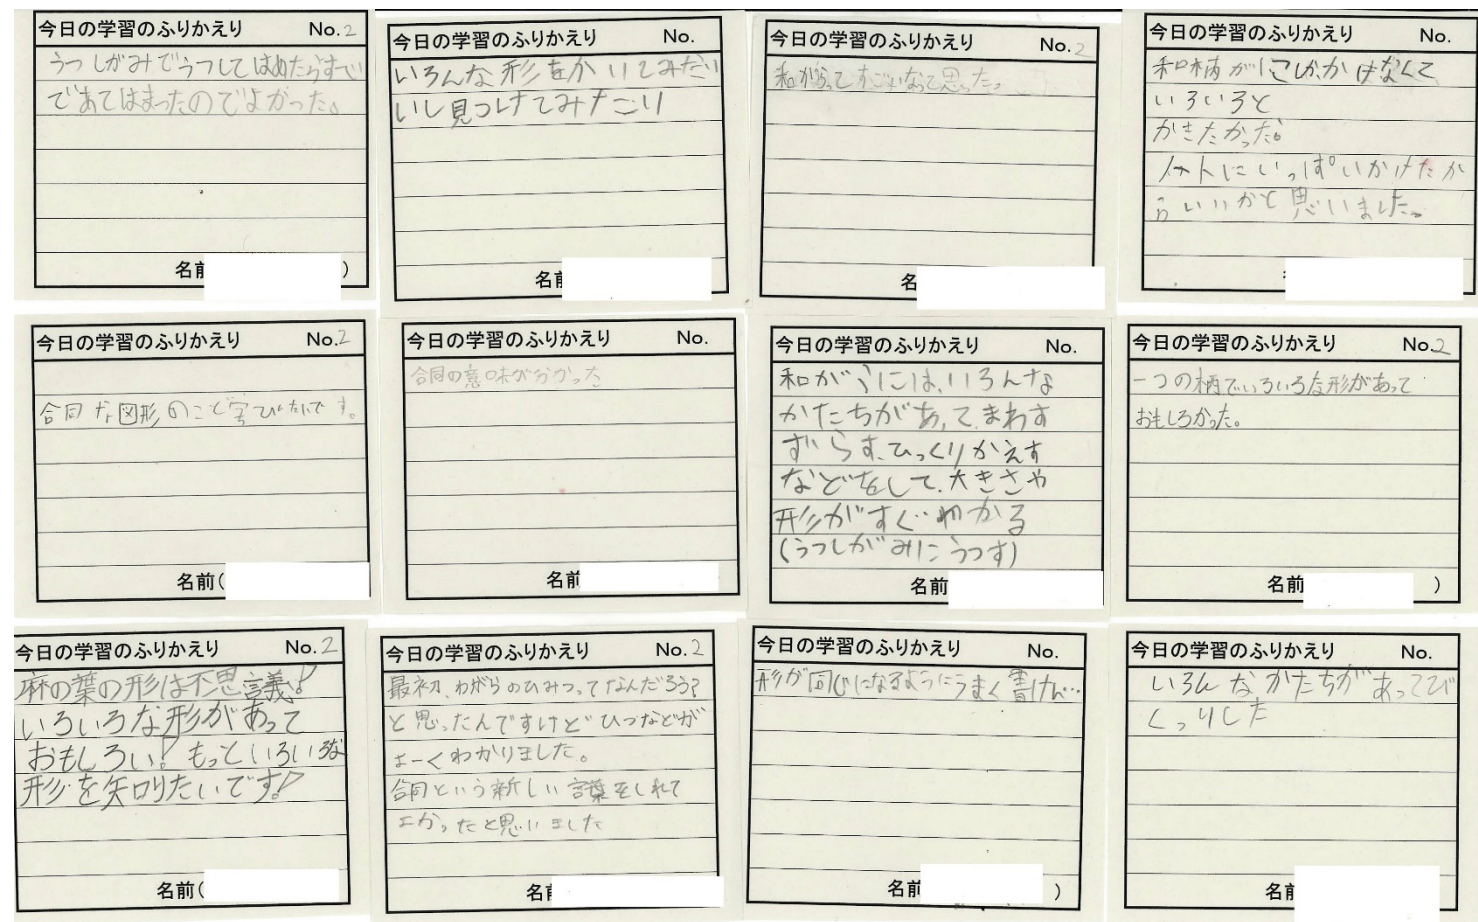 今日の学習のふりかえり No.2
うつしがみでうつしてはめたらすべ
であてはまったのでよかった。
名前 )
今日の学習のふりかえり No.
いろんな形をかいてみたい
いし見つけてみたこり
名前
今日の学習のふりかえり No.2
和がらってすごいなって思った。
名
今日の学習のふりかえり No.
和柄が にしかかけなくて
いろいろと
かきたかった。
ノートにいっぱいかけたか
らいいかと思いました。
今日の学習のふりかえり No.2
合同な図形のこと学びたいです。
名前(
今日の学習のふりかえり No.
合同の意味が分かった
名前
今日の学習のふりかえり No.
和がらには、いろんな
かたちがあって、まわす
ずらす、ひっくりかえす
などをして、大きさや
形がすぐわかる
(うつしがみにうつす)
名前
今日の学習のふりかえり No.2
一つの柄でいろいろな形があって
おもしろかった。
名前 )
今日の学習のふりかえり No.2
麻の葉の形は不思議!
いろいろな形があって
おもしろい!もっといろいろな
形を知りたいです!
名前(
今日の学習のふりかえり No.2
最初、わがらのひみつってなんだろう?
と思ったんですけどひつなどが
よーくわかりました。
合同という新しい言葉をしれて
よかったと思いました
名前
今日の学習のふりかえり No.
形が同じになるようにうまく書けん…
名前 )
今日の学習のふりかえり No.
いろんなかたちがあってび
くっりした
名前